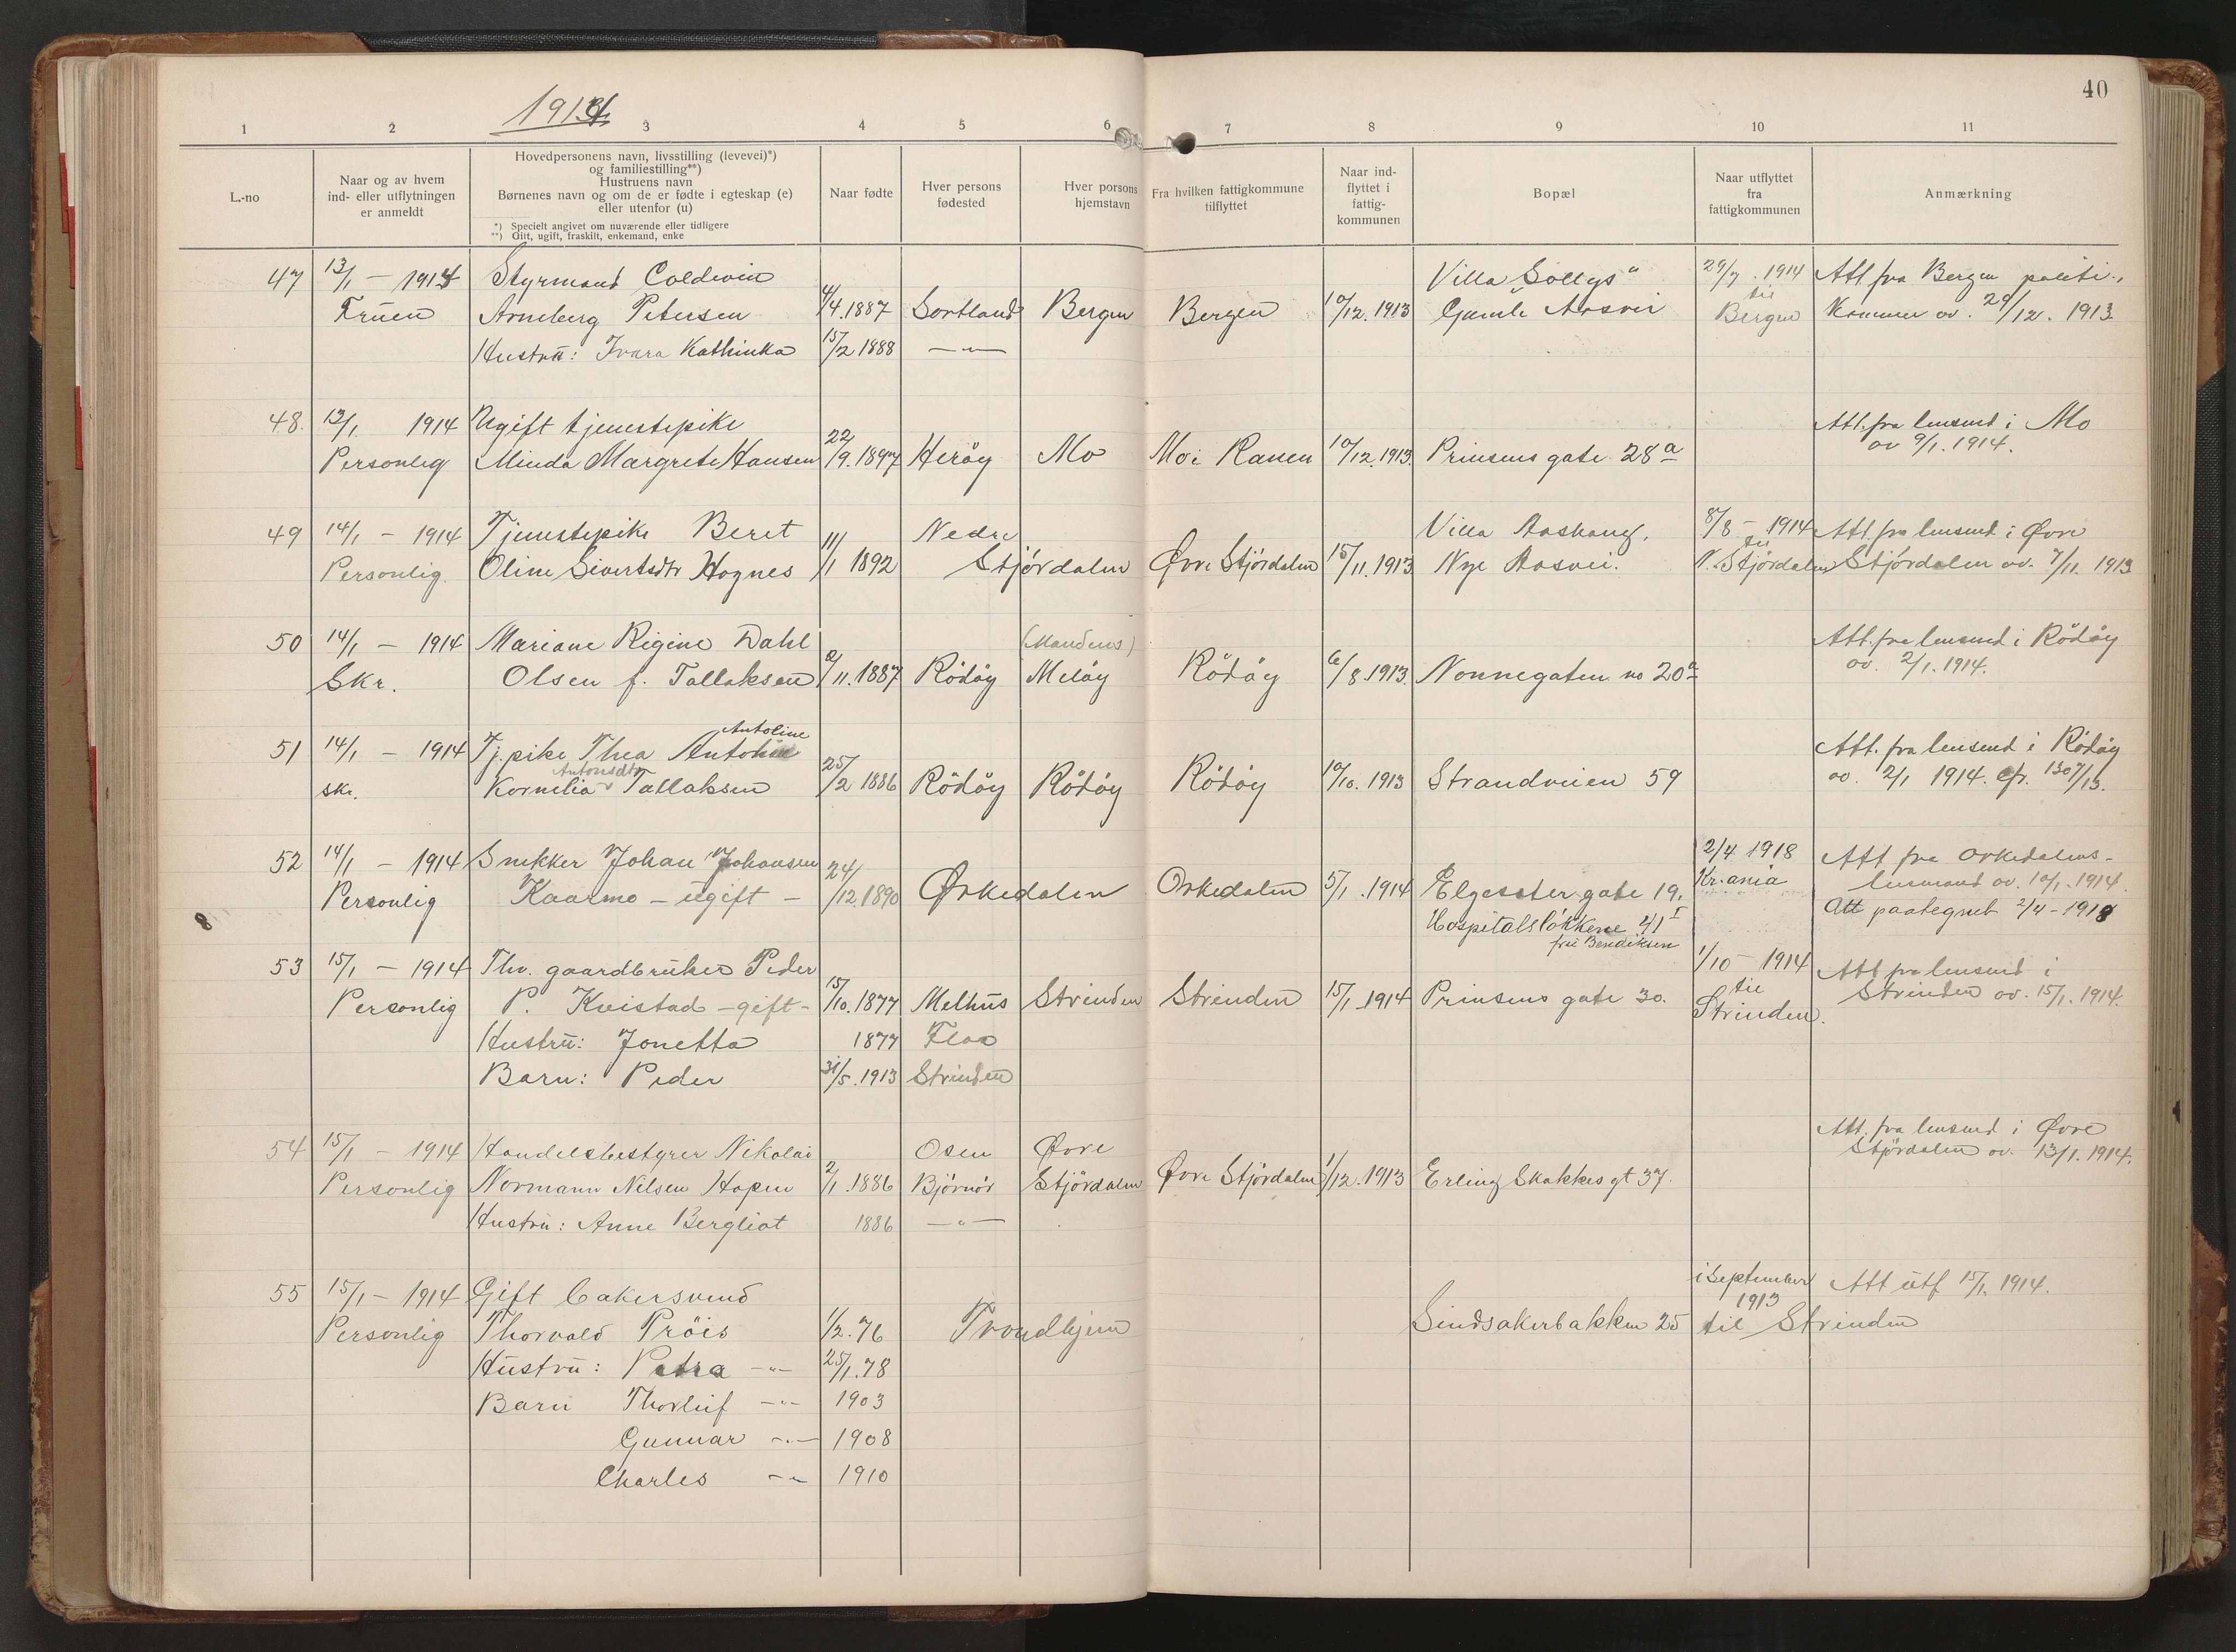 40
1914
1 2 3 4 5 6 7 8 9 10 11
L.-no
Naar og av hvem
ind- eller utflytningen
er anmeldt
Hovedpersonens navn, livsstilling (levevei)*)
og familiestilling**)
Hustruens navn
Børnenes navn og om de er fødte i egteskap (e)
eller utenfor (u)
*) Specielt angivet om nuværende eller tidligere
**) Gift, ugift, fraskilt, enkemand, enke
Naar fødte
Hver persons
fødested
Hver persons
hjemstavn
Fra hvilken fattigkommune
tilflyttet
Naar ind-
flyttet i
fattig-
kommunen
Bopæl
Naar utflyttet
fra
fattigkommunen
Anmærkning
47 13/1 – 1914 Styrmand Coldevin Villa "Sollys" 29/7 . 1914 Att. fra Bergen politi-
Fruen Arneberg Petersen 4/4. 1887 Sortland Bergen Bergen 10/12. 1913 Gamle Aasvei til Bergen kammer av. 29/12. 1913
Hustru: Ivara Kathinka 15/2 1888 —"—
48. 13/1 1914 Ugift tjenestepike Att. fra lensmd i Mo
Personlig Minda Margrete Hansen 22/9. 1897 Herøy Mo Mo i Ranen 10/12. 1913. Prinsens gate 28a av 9/1. 1914.
49 14/1 – 1914 Tjenestepike Beret Nedre Villa Aashaug, 8/8 – 1914 Att. fra lensmd i Øvre
Personlig. Oline Sivertsdtr Hognes 11/1 1892 Stjördalen Øvre Stjördalen 15/11. 1913 Nye Aasvei. til N. Stjördalen Stjördalen av. 7/11. 1913
50 14/1 – 1914 Mariane Rigine Dahl (Mandens) Att. fra lensmd i Rödöy
Skr. Olsen f. Tallaksen 2/11. 1887 Rödöy Melöy Rödöy 6/8. 1913. Nonnegaten no 20a av. 2/1. 1914.
Antoline
51 14/1 – 1914 Tj.pike Thea Antohie Att. fra lensmd i Rödöy
Antonsdtr
skr. Kornelia Tallaksen 25/2 1886 Rödöy Rödöy Rödöy 10/10. 1913 Strandveien 59 av. 2/1 1914. cfr. 1307/13.
52 14/1 – 1914 Snekker Johan Johansen 2/4 1918 Att fra Orkedalens-
Personlig Kaarmo – ugift – 24/12. 1890 Orkedalen Orkedalen 5/1. 1914 Elgeseter gate 19. Kr.ania lensmand av. 10/1. 1914.
8 Hospitalsløkkene 41 I Att paategnet 2/4 – 1918
frü Bendiksen
53 15/1 – 1914 Thv. gaardbruker Peder 1/10 – 1914 Att fra lensmd i
Personlig P. Kvistad – gift – 15/10. 1877 Melhus Strinden Strinden 15/1. 1914 Prinsens gate 30. til Strinden. Strinden av. 15/1. 1914.
Hustru: Jonetta 1877 Flaa
Barn: Peder 31/5. 1913 Strinden
54 15/1 – 1914 Handelsbestyrer Nikolai Osen Øvre Att. fra lensmd i Øvre
Personlig Normann Nelsen Hopen 2/1. 1886 Björnör Stjördalen Øvre Stjördalen 1/12. 1913 Erling Skakkes gt 37. Stjördalen av. 13/1. 1914.
Hustru: Anne Bergliot 1886 —"—
55 15/1 – 1914 Gift bakersvend i September Att utf 15/1. 1914.
Personlig Thorvald Pröis 1/2. 76 Trondhjem Sindsakerbakken 25 1913 til Strinden
Hustru: Petra —"— 25/1. 78
Barn Thorleif —"— 1903
Gunnar —"— 1908
Charles —"— 1910